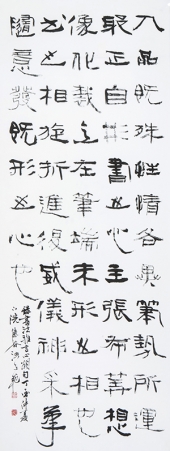 人品既殊性情各異筆勢所運
邪正自形書之心主張布算想
像化裁意在筆端未形之相也
書之相旋折進退威儀神采筆
隨意發既形之心也